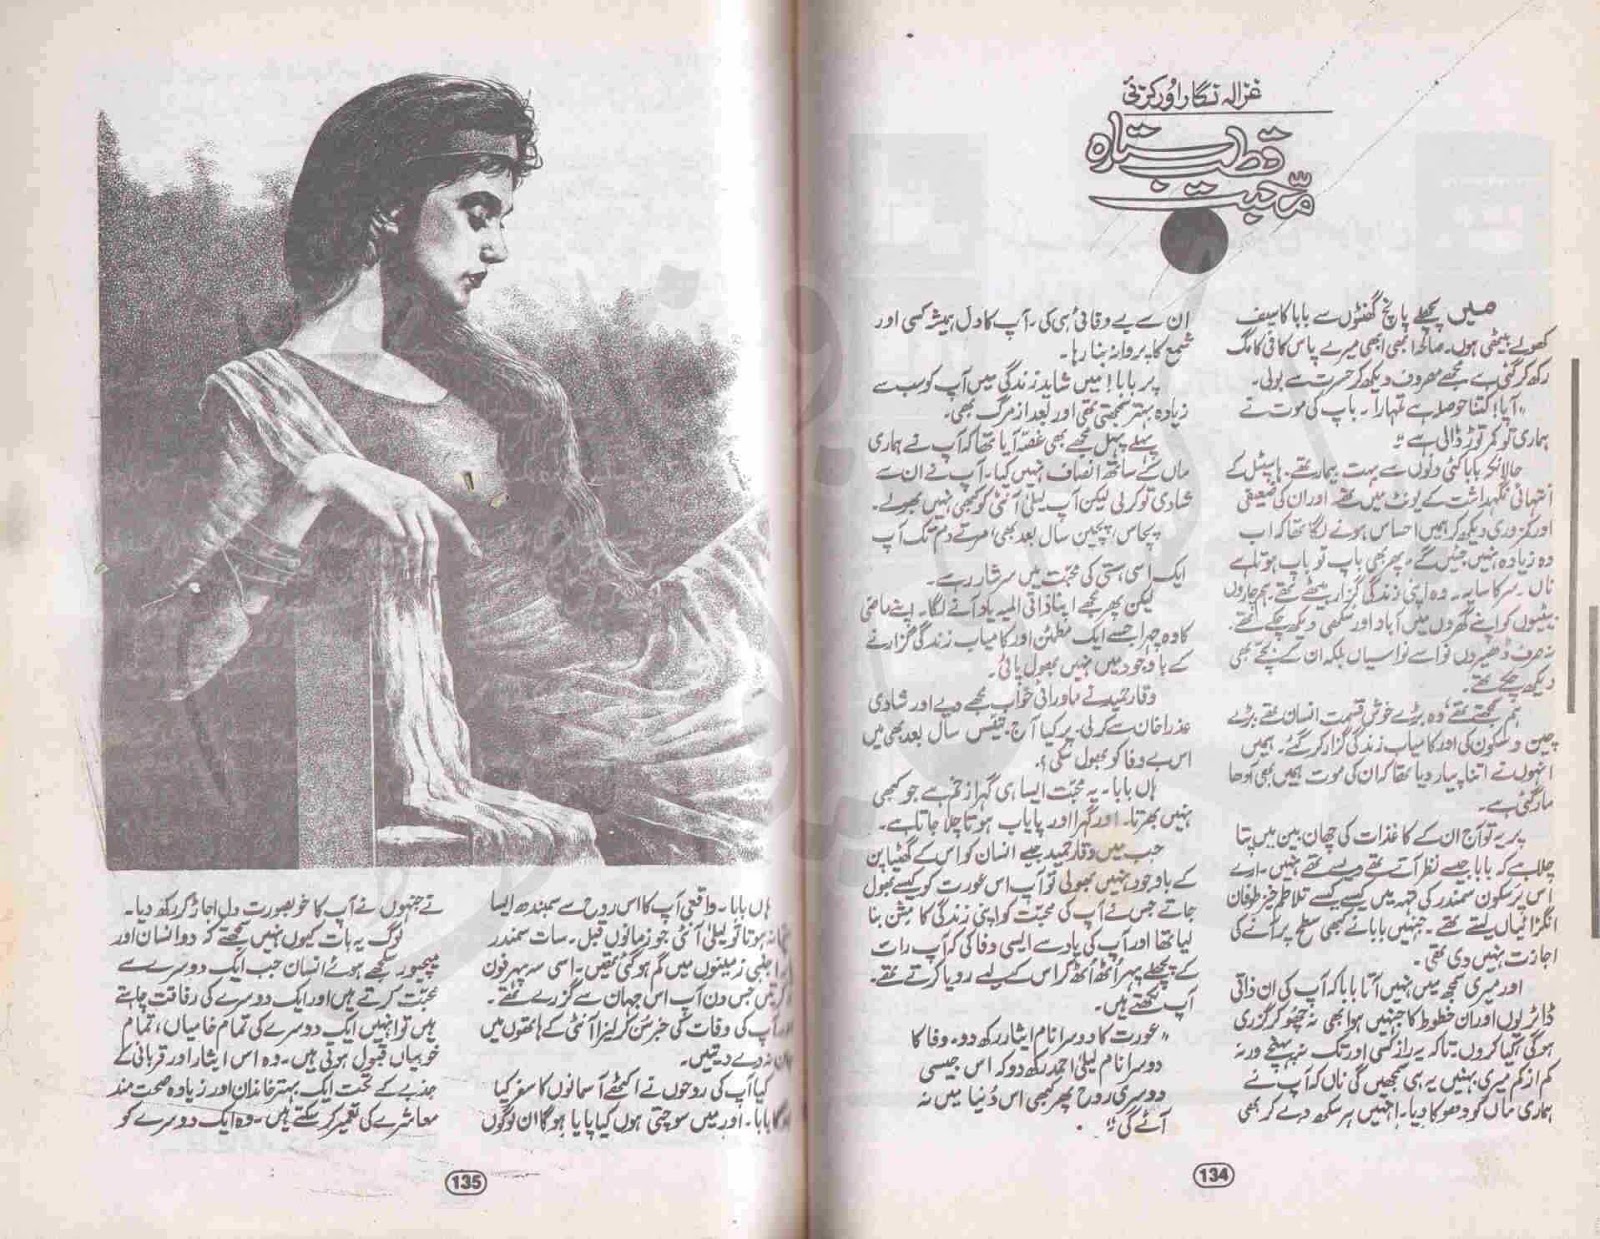 غزالہ نگار اورکزئی
محبت قطب ستارہ
میں پچھلے پانچ گھنٹوں سے بابا کا سیف
کھولے بیٹھی ہوں۔ صالحہ ابھی ابھی میرے پاس کافی کا مگ
رکھ کر گئی ہے مجھے مصروف دیکھ کر حسرت سے بولی۔
"آپا! کتنا حوصلہ ہے تمہارا۔ باپ کی موت نے
ہماری تو کمر توڑ ڈالی ہے"
حالانکہ بابا کئی دنوں سے بہت بیمار تھے۔ ہاسپٹل کے
انتہائی نگہداشت کے یونٹ میں تھے اور ان کی ضعیفی
اور کمزوری دیکھ کر ہمیں احساس ہونے لگا تھا کہ اب
وہ زیادہ نہیں جئیں گے۔ پھر بھی باپ تو باپ ہوتا ہے
ناں۔ سر کا سایہ۔ وہ اپنی زندگی گزار بیٹھے تھے۔ ہم چاروں
بیٹیوں کو اپنے گھروں میں آباد اور سکھی دیکھ چکے تھے۔
نہ صرف ڈھیروں نواسے نواسیاں بلکہ ان کے بچے بھی
دیکھ چکے تھے۔
ہم سمجھتے تھے، وہ بڑے خوش قسمت انسان تھے بڑے
چین و سکون کی اور کامیاب زندگی گزار کر گئے۔ ہمیں
انہوں نے اتنا پیار دیا تھا کہ ان کی موت ہمیں بھی آدھا
مار گئی ہے۔
پر یہ تو آج ان کے کاغذات کی چھان بین میں پتا
چلا ہے کہ بابا جیسے نظر آتے تھے ویسے تھے نہیں۔ ارے
اس پرسکون سمندر کی تہہ میں کیسے کیسے تلاطم خیز طوفان
انگڑائیاں لیتے تھے۔ جنہیں بابا نے کبھی سطح پر آنے کی
اجازت نہیں دی تھی۔
اور میری سمجھ میں نہیں آتا بابا کہ آپ کی ان ذاتی
ڈائریوں اور ان خطوط کا جنہیں ہوا بھی نہ چھو کر گزری
ہوگی، کیا کروں۔ تاکہ یہ راز کسی اور تک نہ پہنچے ورنہ
کم از کم میری بہنیں یہ ہی سمجھیں گی ناں کہ آپ نے
ہماری ماں کو دھوکا دیا۔ انہیں ہر سکھ دے کر بھی
ان سے بے وفائی ہی کی۔ آپ کا دل ہمیشہ کسی اور
شمع کا پروانہ بنا رہا۔
پر بابا! میں شاید زندگی میں آپ کو سب سے
زیادہ بہتر سمجھتی تھی اور بعد از مرگ بھی۔
پہلے پہل مجھے بھی غصہ آیا تھا کہ آپ نے ہماری
ماں کے ساتھ انصاف نہیں کیا۔ آپ نے ان سے
شادی تو کر لی لیکن آپ لیلیٰ آنٹی کو کبھی نہیں بھولے۔
پچاس، پچپن سال بعد بھی، مرتے دم تک آپ
ایک اسی ہستی کی محبت میں سرشار رہے۔
لیکن پھر مجھے اپنا ذاتی المیہ یاد آنے لگا۔ اپنے ماضی
کا وہ چہرا جسے ایک مطمئن اور کامیاب زندگی گزارنے
کے باوجود میں نہیں بھول پائی۔
وقار حمید نے ماورائی خواب مجھے دیے اور شادی
عذرا خان سے کر لی۔ پر کیا آج تیس سال بعد بھی میں
اس بے وفا کو بھول سکی؟
ہاں بابا۔ یہ محبت ایسا ہی گہرا زخم ہے جو کبھی
نہیں بھرتا۔ اور گہرا اور پایاب ہوتا چلا جاتا ہے۔
جب میں وقار حمید جیسے انسان کو اس کے گھٹیا پن
کے باوجود نہیں بھولی تو آپ اس عورت کو کیسے بھول
جاتے جس نے آپ کی محبت کو اپنی زندگی کا مشن بنا
لیا تھا اور آپ کی یاد سے ایسی وفا کی کہ آپ رات
کے پچھلے پہر اُٹھ اُٹھ کر اس کے لیے رویا کرتے تھے۔
آپ لکھتے ہیں۔
"عورت کا دوسرا نام ایثار رکھ دو۔ وفا کا
دوسرا نام لیلیٰ احمد رکھ دو کہ اس جیسی
دوسری روح پھر کبھی اس دُنیا میں نہ
آئے گی"
134
ہاں بابا۔ واقعی آپ کا اس روح سے سمبندھ ایسا
نہ ہوتا تو لیلیٰ آنٹی جو زمانوں قبل۔ سات سمندر
اجنبی زمینوں میں گم ہو گئی تھیں۔ اسی سہ پہر فون
کرتیں جس دن آپ اس جہان سے گزرے تھے۔
آپ کی وفات کی خبر سن کر لیزا آنٹی کے ہاتھوں میں
نہ دے دیتیں۔
کیا آپ کی روحوں نے اکٹھے آسمانوں کا سفر کیا
بابا۔ اور میں سوچتی ہوں کیا پایا ہوگا ان لوگوں
نے جنہوں نے آپ کا خوبصورت دل اجاڑ کر رکھ دیا۔
لوگ یہ بات کیوں نہیں سمجھتے کہ دو انسان اور
میچیور سلجھے ہوئے انسان جب ایک دوسرے سے
محبت کرتے ہیں اور ایک دوسرے کی رفاقت چاہتے
ہیں تو انہیں ایک دوسرے کی تمام خامیاں، تمام
خوبیاں قبول ہوتی ہیں۔ وہ اس ایثار اور قربانی کے
جذبے کے تحت ایک بہتر خاندان اور زیادہ صحت مند
معاشرے کی تعمیر کر سکتے ہیں۔ وہ ایک دوسرے کو
135